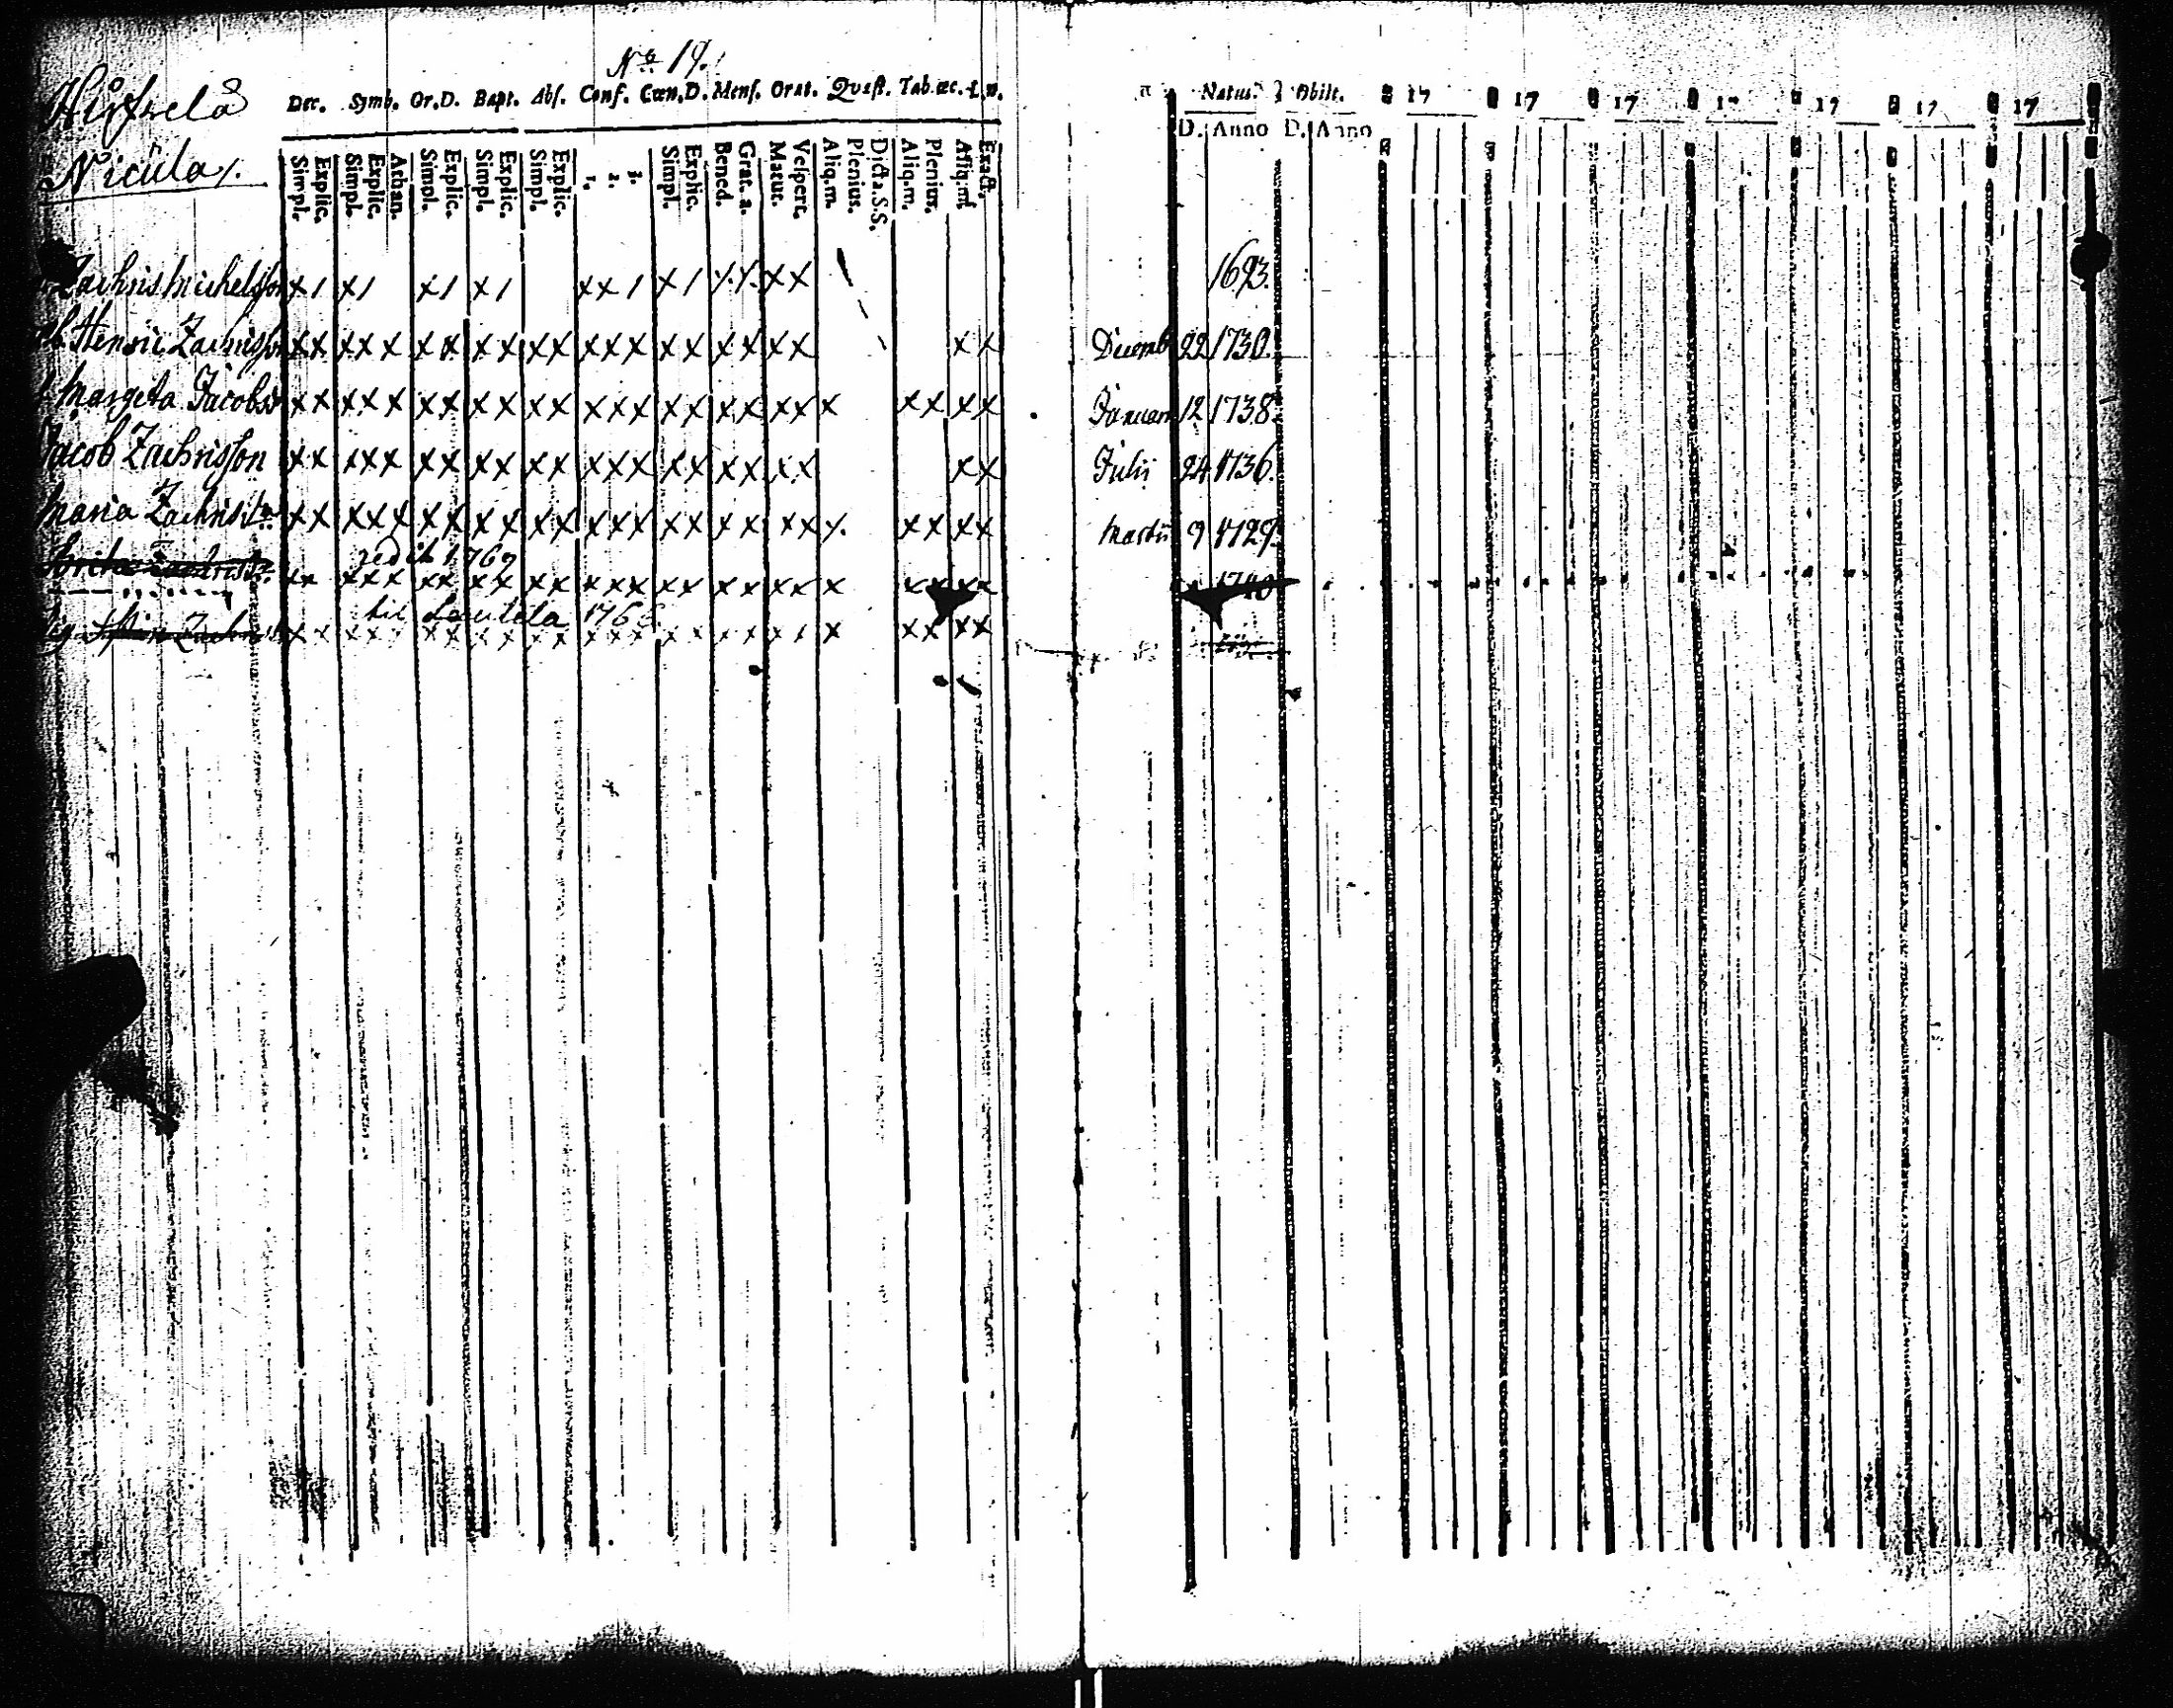 No 19.
Nicula
Dec. Symb. Or.D. Bapt. Abs. Conf. Cœn.D. Mens. Orat. Quæst. Tab.œc.
Simpl. Explic. Simpl. Explic. Athan. Simpl. Explic. Simpl. Explic. Simpl. Explic. 1. 2. 3. Simpl. Explic. Bened. Grat. a. Matut. Vespert. Aliq.m. Plenius. Dicta.S.S. Aliq.m. Plenius. Exact.
Natus Obiit. 17 17 17 17 17 17 17
D. Anno D. Anno
Zachris Michelsson x / x / x / x / x x / x / x x 1693.
Henric Zachrisson x x x x x x x x x x x x x x x x x x x x x Decemb 22 1730.
Margeta Jacobsd x x x x x x x x x x x x x x x x x x x x x x x x Januari 12 1738.
Jacob Zachrisson x x x x x x x x x x x x x x x x x x x x x x Julii 24 1736.
Maria Zachrisdr x x x x x x x x x x x x x x x x x x x x x x x x x Martii 9 1729.
rediit 1769
x x x x x x x x x x x x x x x x x x x x x x x x x 1740
til 176
Zachrisdr x x x x x x x x x x x x x x x x x x x x x x x x x